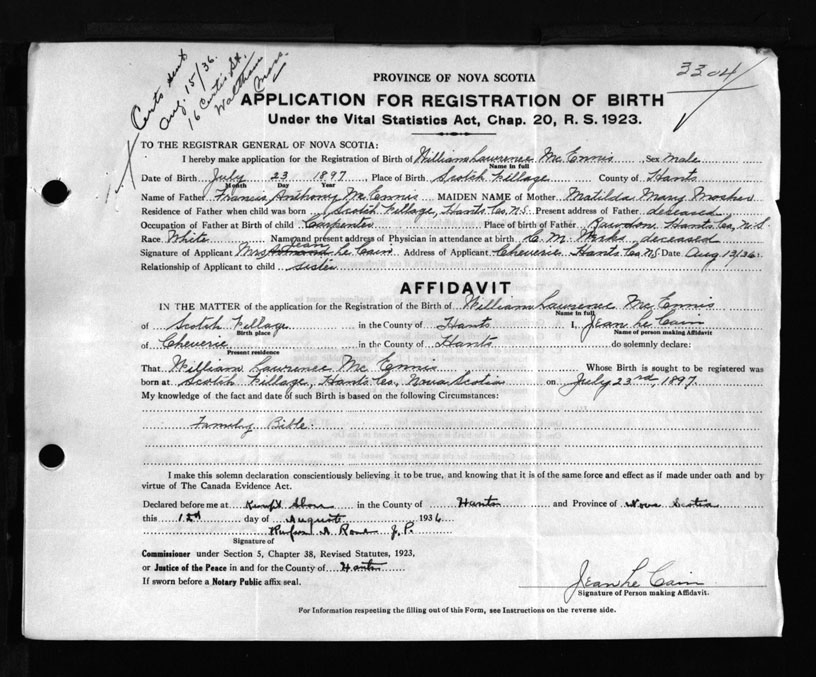 Certs sent
Aug. 15/36.
16 Curtis St.
Waltham
Mass.
3304
PROVINCE OF NOVA SCOTIA
APPLICATION FOR REGISTRATION OF BIRTH
Under the Vital Statistics Act, Chap. 20, R. S. 1923.
TO THE REGISTRAR GENERAL OF NOVA SCOTIA:
I hereby make application for the Registration of Birth of William Lawrence McEnnis Sex Male
Name in full
Date of Birth July 23 1897 Place of Birth Scotch Village County of Hants
Month Day Year
Name of Father Francis Anthony McEnnis MAIDEN NAME of Mother Matilda Mary Mosher
Residence of Father when child was born Scotch Village, Hants Co, N.S. Present address of Father deceased
Occupation of Father at Birth of child Carpenter Place of birth of Father Rawdon, Hants Co, N.S
Race White Name and present address of Physician in attendance at birth C. M. deceased
Jean
Signature of Applicant Mrs Le Cain Address of Applicant Cheverie Hants Co NS Date Aug 12/36
Relationship of Applicant to child sister
AFFIDAVIT
IN THE MATTER of the application for the Registration of the Birth of William Lawrence McEnnis
Name in full
of Scotch Village in the County of Hants I, Jean Le Cain
Birth place Name of person making Affidavit
of Cheverie in the County of Hants do solemnly declare:
Present residence
That William Lawrence McEnnis Whose Birth is sought to be registered was
born at Scotch Village, Hants Co., Nova Scotia on July 23rd, 1897
My knowledge of the fact and date of such Birth is based on the following Circumstances:
Family Bible.
I make this solemn declaration conscientiously believing it to be true, and knowing that it is of the same force and effect as if made under oath and by
virtue of The Canada Evidence Act.
Declared before me at Shore in the County of Hants and Province of Nova Scotia
this 12th day of August 1936
J. P.
Signature of
Commissioner under Section 5, Chapter 38, Revised Statutes, 1923,
or Justice of the Peace in and for the County of Hants
If sworn before a Notary Public affix seal.
Jean Le Cain
Signature of Person making Affidavit.
For Information respecting the filling out of this Form, see Instructions on the reverse side.